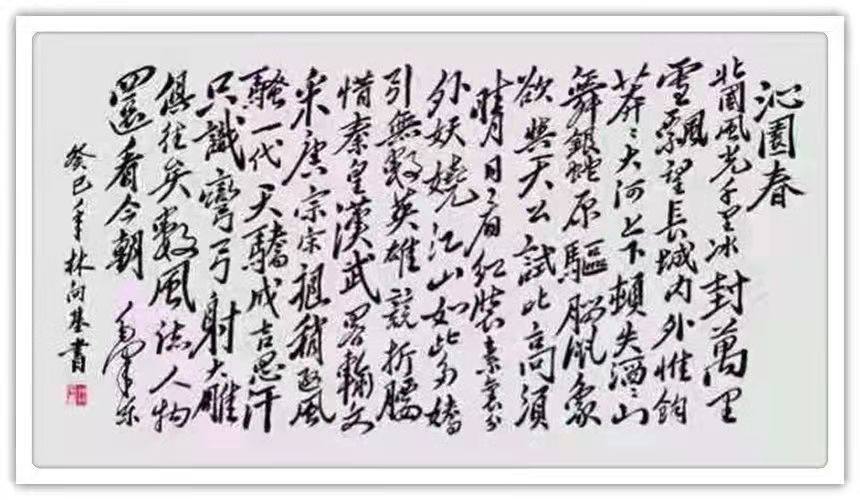 沁園春
北國風光千里冰封萬里
雪飄望長城內外惟餘
莽〻大河上下頓失滔〻山
舞銀蛇原驅臘象
欲與天公試比高須
晴日〻看紅裝素裹分
外妖嬈江山如此多嬌
引無數英雄競折腰
惜秦皇漢武畧輸文
采唐宗宋祖稍遜風
騷一代天驕成吉思汗
只識彎弓射大雕
俱往矣數風流人物
還看今朝 毛澤東
癸巳年林向基書